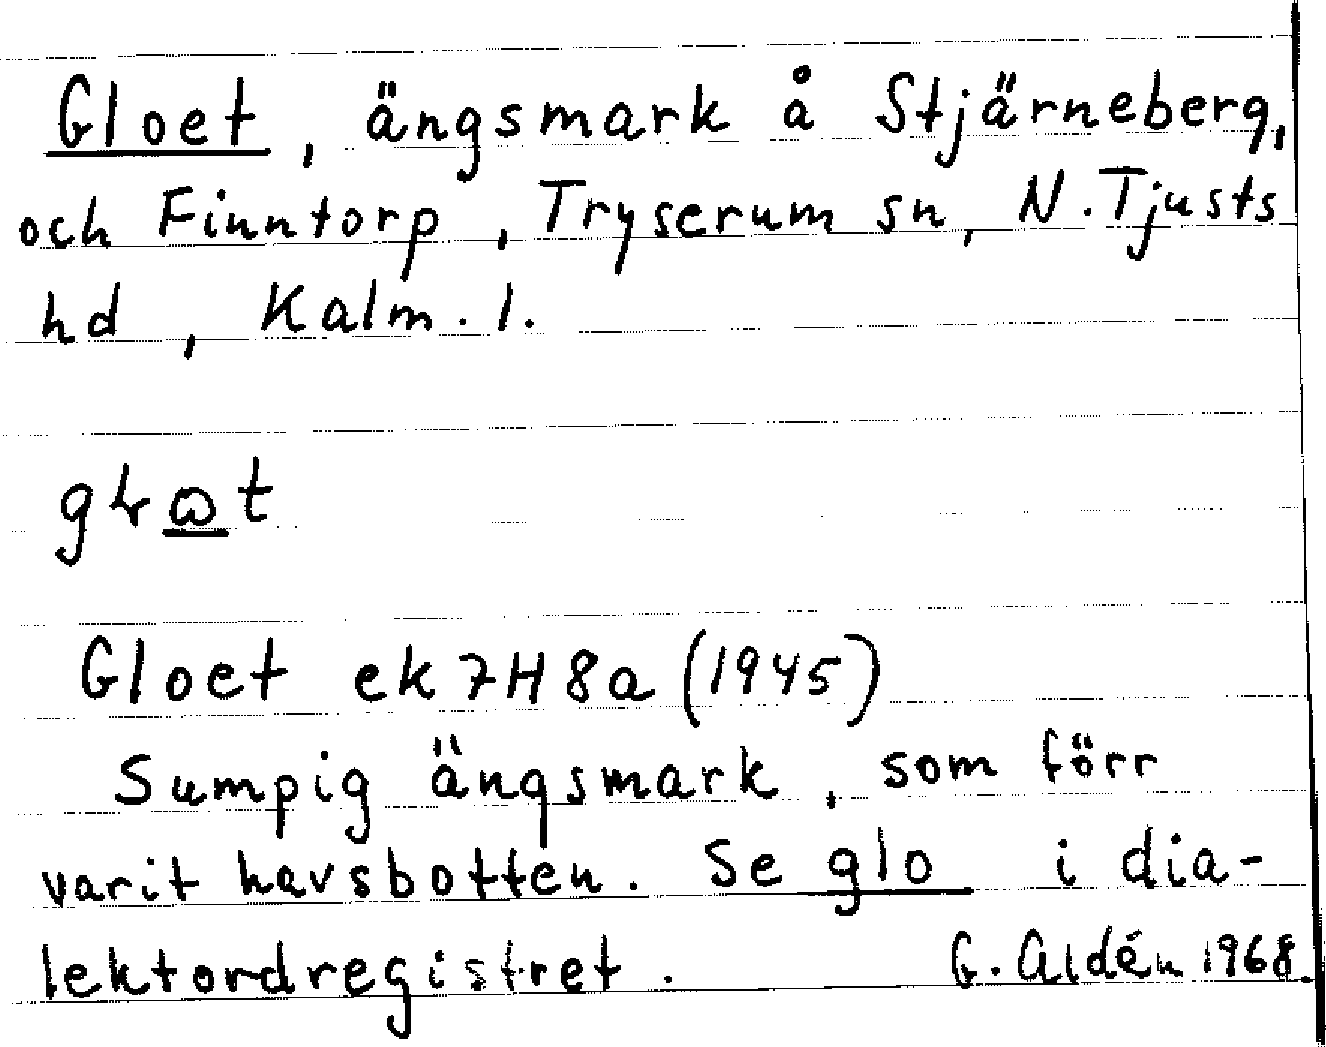 Gloet, ängsmark å Stjärneberg,
och Finntorp, Tryserum sn, N. Tjusts
hd, Kalm. l.
Gloet ek 7H8a (1945)
Sumpig ängsmark, som förr
varit havsbotten. Se glo i dia-
lektordregistret. G. Aldén 1968.